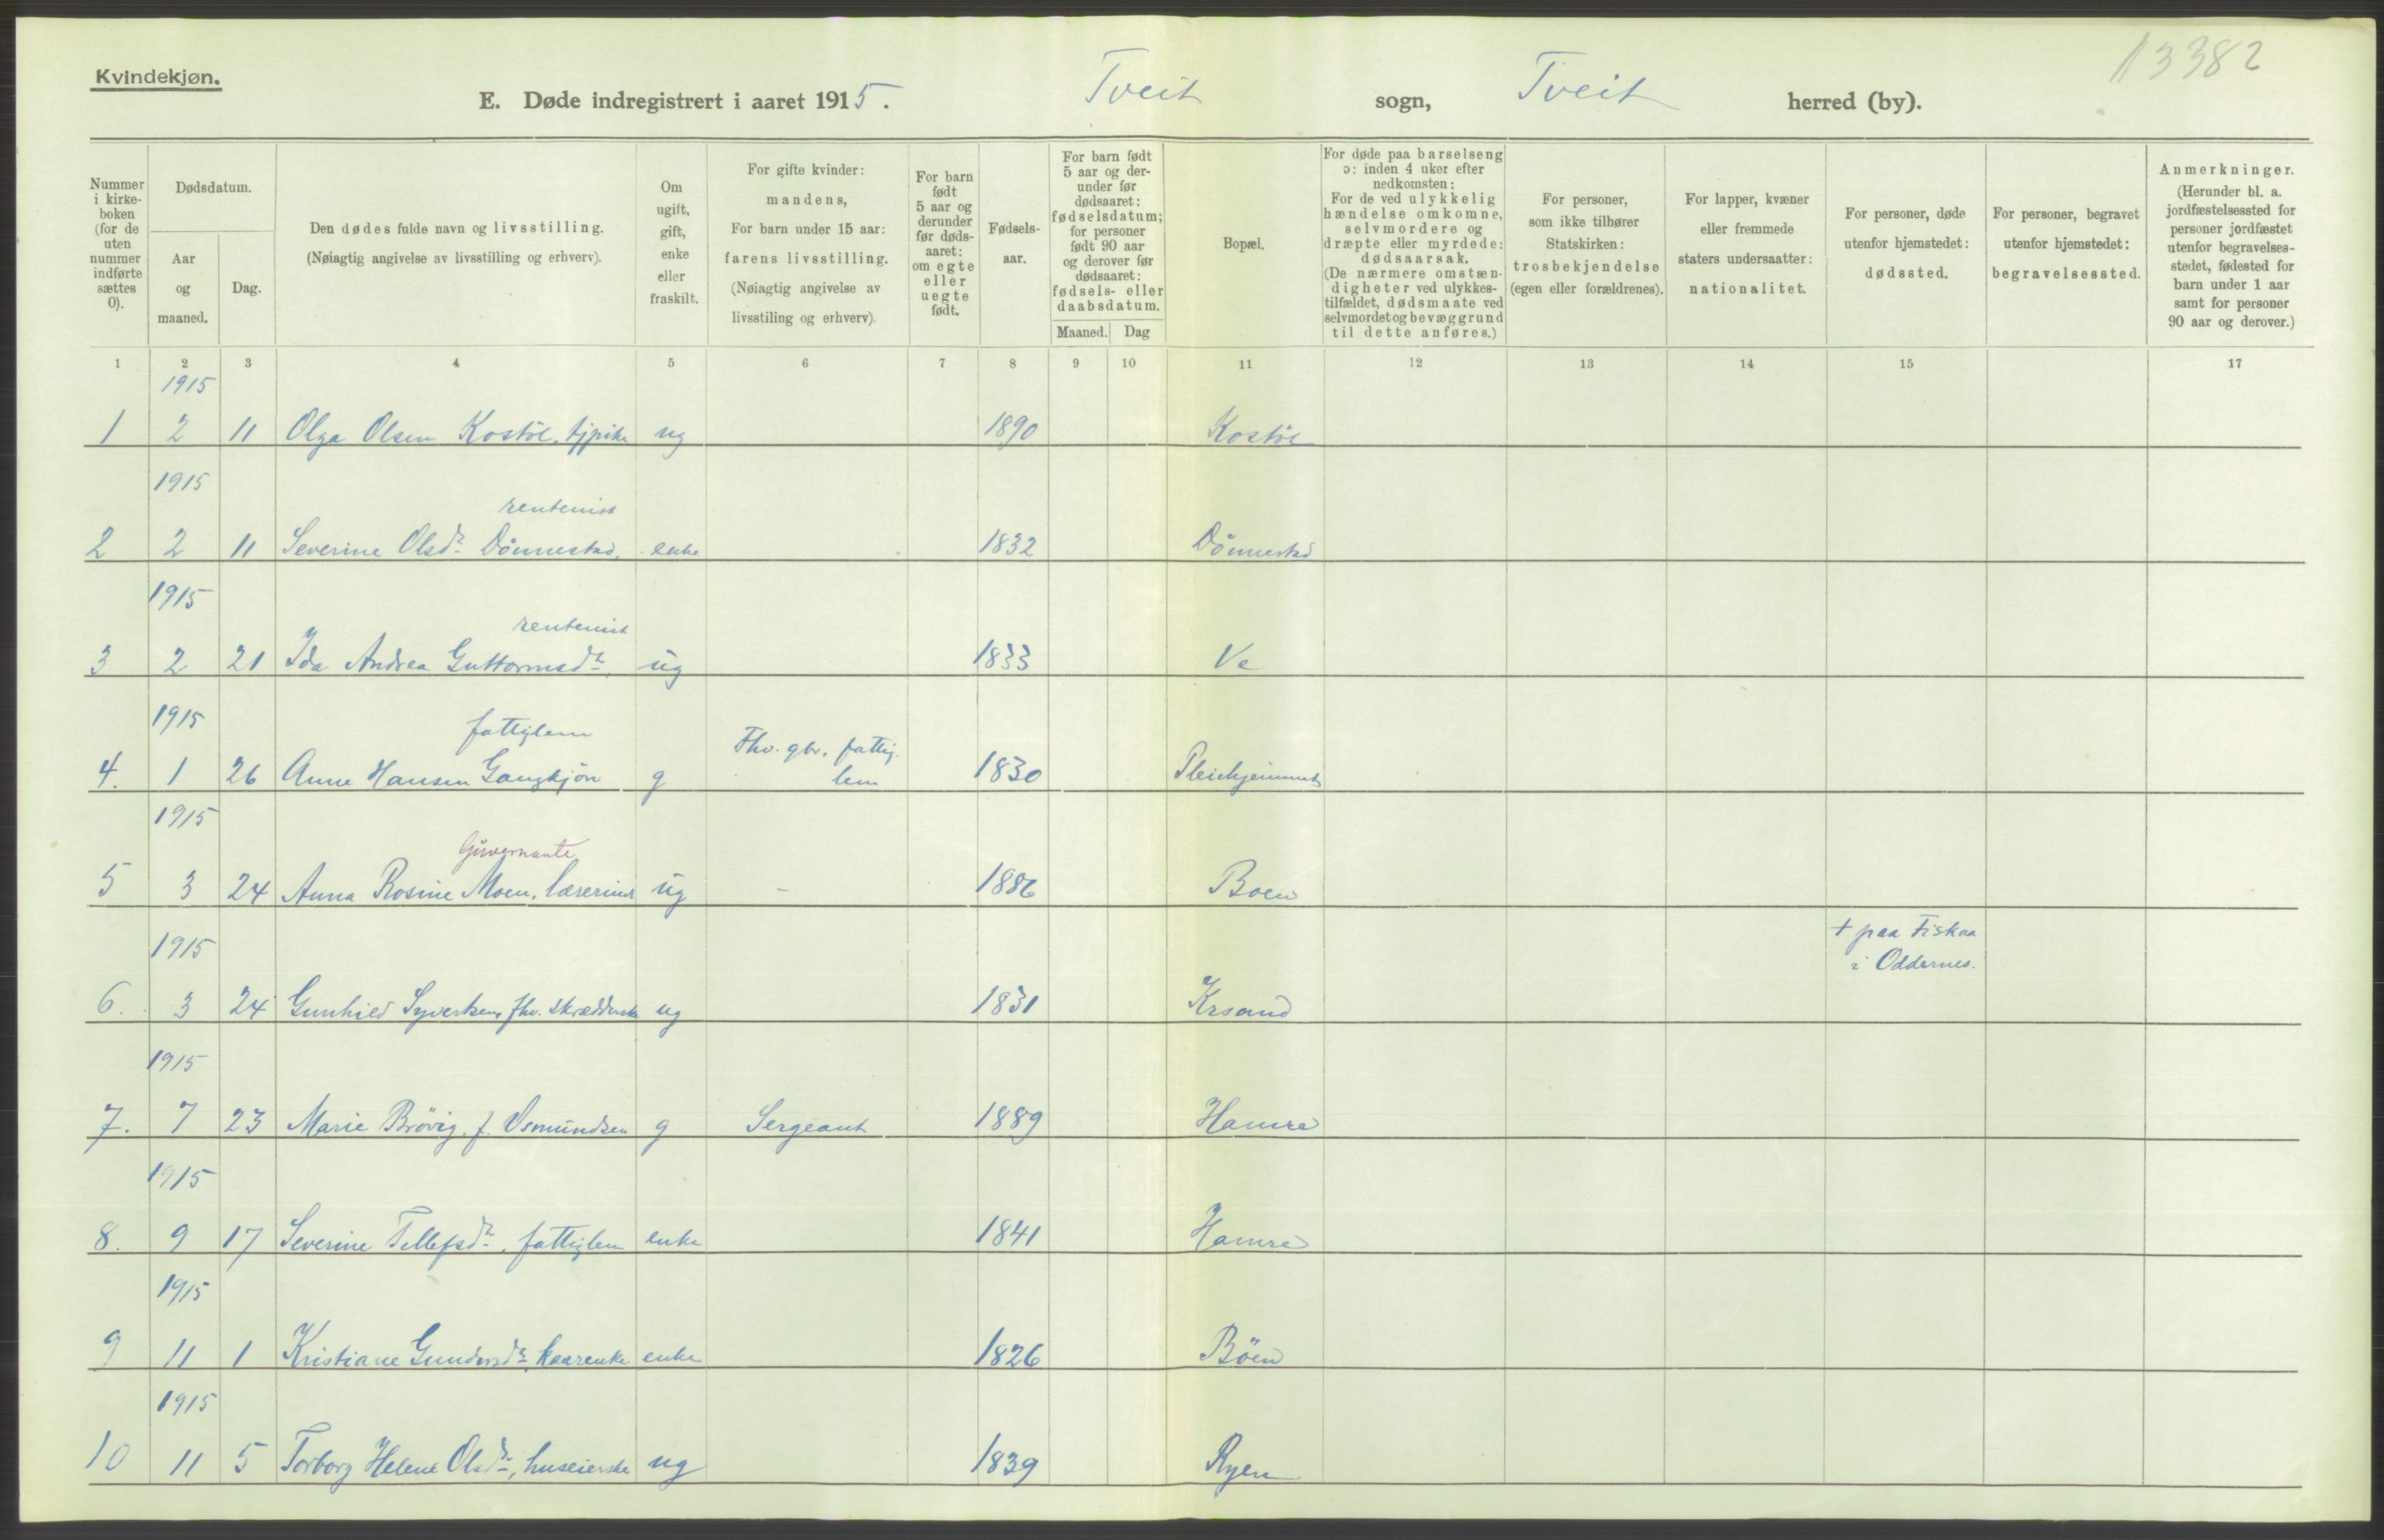 Kvindekjøn.
13382
E. Døde indregistrert i aaret 1915. Tveit sogn, Tveit herred (by).
Nummer i kirke- boken (for de uten nummer indførte sættes 0).
Dødsdatum.
Aar og maaned.
Dag.
Den dødes fulde navn og livsstilling.
(Nøiagtig angivelse av livsstilling og erhverv).
Om ugift, gift, enke eller fraskilt.
For gifte kvinder:
mandens,
For barn under 15 aar:
farens livsstilling.
(Nøiagtig angivelse av
livsstiling og erhverv).
For barn født 5 aar og derunder før døds- aaret: om egte eller uegte født.
Fødsels- aar.
For barn født 5 aar og der- under før dødsaaret: fødselsdatum; for personer født 90 aar og derover før dødsaaret: fødsels- eller daabsdatum.
Maaned. Dag
Bopæl.
For døde paa barselseng ɔ: inden 4 uker efter nedkomsten: For de ved ulykkelig hændelse omkomne, selvmordere og dræpte eller myrdede: dødsaarsak. (De nærmere omstæn- digheter ved ulykkes- tilfældet, dødsmaate ved selvmordet og bevæggrund til dette anføres.)
For personer, som ikke tilhører Statskirken: trosbekjendelse (egen eller forældrenes).
For lapper, kvæner eller fremmede staters undersaatter: nationalitet.
For personer, døde utenfor hjemstedet: dødssted.
For personer, begravet utenfor hjemstedet: begravelsessted.
Anmerkninger.
(Herunder bl. a. jordfæstelsessted for personer jordfæstet utenfor begravelses- stedet, fødested for barn under 1 aar samt for personer 90 aar og derover.)
1 2 3 4 5 6 7 8 9 10 11 12 13 14 15 17
1915
1 2 11 Olga Olsen Kostöl, tjpike ug 1890 Kostöl
1915
rentenist
2 2 11 Severine Olsdr. Dönnestad, enke 1832 Dönnestad
1915
rentenist
3 2 21 Ida Andrea Guttormsdr, ug 1833 Ve
1915
fattiglem Fhv. gbr. fattig-
4. 1 26 Anne Hansen Gangkjön g lem 1830 Pleiehjemmet
1915
Guvernante
5 3 24 Anna Rosine Moen, lærerinde ug - 1886 Boen
1915 + paa Fiskaa
i Oddernes.
6. 3 24 Gunhild Syvertsen, fhv. skrædderske ug 1831 Krsand
1915
7. 7 23 Marie Brövig, f. Osmundsen g Sergeant 1889 Hamre
1915
8. 9 17 Severine Tellefsdr, fattiglem enke 1841 Hamre
1915
9 11 1 Kristiane Gundersdr, kaarenke enke 1826 Böen
1915
10 11 5 Torborg Helene Olsdr, huseierske ug 1839 Ryen